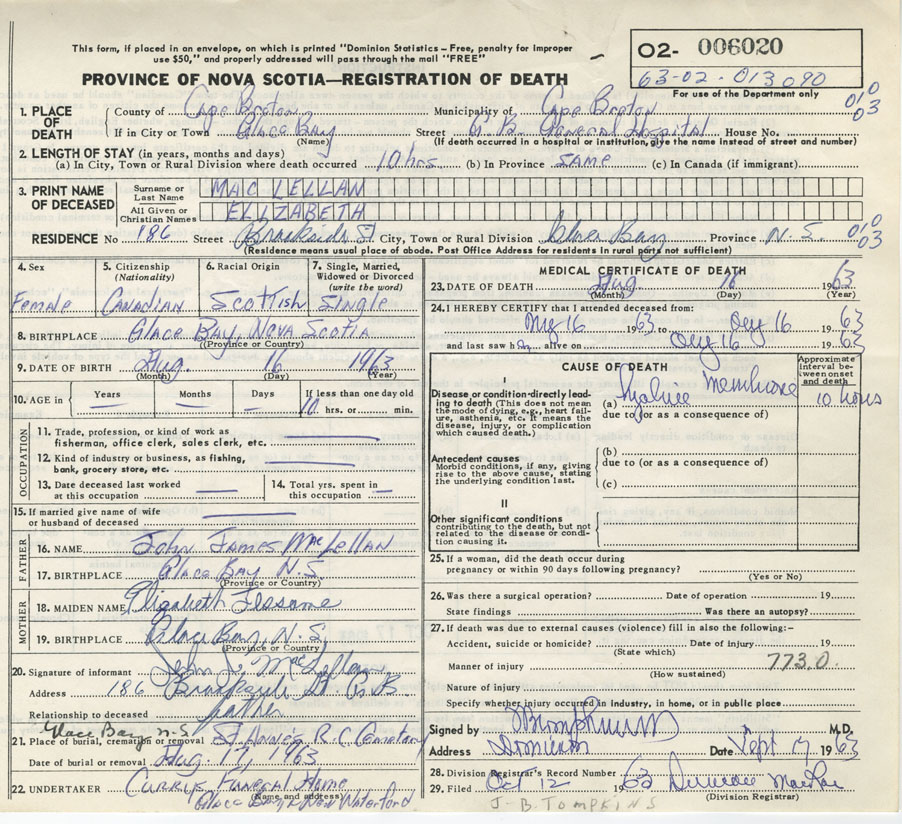 This form, if placed in an envelope, on which is printed "Dominion Statistics – Free, penalty for improper
use $50," and properly addressed will pass through the mail "FREE"
O2- 006020
63-02-013090
For use of the Department only
PROVINCE OF NOVA SCOTIA—REGISTRATION OF DEATH
1. PLACE OF DEATH County of Cape Breton Municipality of Cape Breton 010
If in City or Town Glace Bay Street G.B. General Hospital House No. 03
(Name) (If death occurred in a hospital or institution, give the name instead of street and number)
2. LENGTH OF STAY (in years, months and days)
(a) In City, Town or Rural Division where death occurred 10 hrs (b) In Province SAME (c) In Canada (if immigrant)
3. PRINT NAME OF DECEASED Surname or Last Name MAC LELLAN
All Given or Christian Names ELIZABETH
RESIDENCE No 186 Street Brookside St City, Town or Rural Division Glace Bay Province N.S. 010 03
(Residence means usual place of abode. Post Office Address for residents in rural parts not sufficient)
4. Sex 5. Citizenship (Nationality) 6. Racial Origin 7. Single, Married, Widowed or Divorced (write the word)
Female Canadian Scottish Single
8. BIRTHPLACE Glace Bay, Nova Scotia
(Province or Country)
9. DATE OF BIRTH Aug. 16 1963
(Month) (Day) (Year)
10. AGE in Years Months Days If less than one day old
10 hrs. or min.
OCCUPATION
11. Trade, profession, or kind of work as
fisherman, office clerk, sales clerk, etc.
12. Kind of industry or business, as fishing,
bank, grocery store, etc.
13. Date deceased last worked at this occupation 14. Total yrs. spent in this occupation
15. If married give name of wife
or husband of deceased
FATHER
16. NAME John James MacLellan
17. BIRTHPLACE Glace Bay N.S.
(Province or Country)
MOTHER
18. MAIDEN NAME Elizabeth
19. BIRTHPLACE Glace Bay, N.S.
(Province or Country)
20. Signature of informant John J. MacLellan
Address 186 Brookside St. G.B.
Relationship to deceased father
Glace Bay N.S.
21. Place of burial, cremation or removal St. Anne's R.C. Cemetary
Date of burial or removal Aug. 17, 1963
22. UNDERTAKER Curry Funeral Home
(Name and address)
Glace Bay & New Waterford
MEDICAL CERTIFICATE OF DEATH
23. DATE OF DEATH Aug 16 1963
(Month) (Day) (Year)
24. I HEREBY CERTIFY that I attended deceased from:
Aug 16 1963 to Aug 16 19 63
and last saw h alive on Aug 16 19 63
CAUSE OF DEATH Approximate interval between onset and death
I
Disease or condition directly leading to death (This does not mean the mode of dying, e.g., heart failure, asthenia, etc. It means the disease, injury, or complication which caused death.)
(a) Hyaline Membrane 10 hours
due to (or as a consequence of)
Antecedent causes
Morbid conditions, if any, giving rise to the above cause, stating the underlying condition last.
(b)
due to (or as a consequence of)
(c)
II
Other significant conditions
contributing to the death, but not related to the disease or condition causing it.
25. If a woman, did the death occur during
pregnancy or within 90 days following pregnancy?
(Yes or No)
26. Was there a surgical operation? Date of operation 19
State findings Was there an autopsy?
27. If death was due to external causes (violence) fill in also the following:–
Accident, suicide or homicide? Date of injury 19
(State which)
Manner of injury 773.0
(How sustained)
Nature of injury
Specify whether injury occurred in industry, in home, or in public place
Signed by M.D.
Address Dominion Date Sept 17 1963
28. Division Registrar's Record Number
29. Filed Oct 12 1963 Duncan MacRae
(Division Registrar)
J-B. TOMPKINS